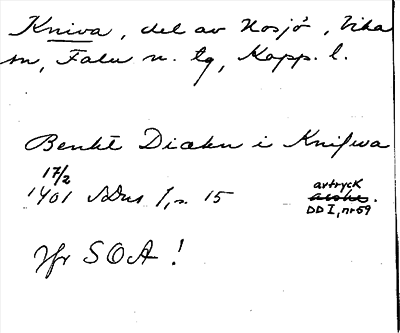 Kniva, del av Hosjö, Vika
sn, Falu n. tg, Kopp. l.
Benkt Diækn i Knifwa
17/2
1401 SDns I, s. 15
avtryck
DD I, nr 59
Jfr SOA!